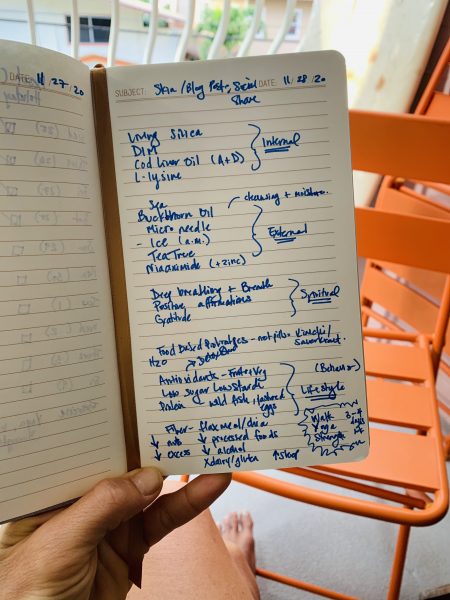 DATE: 11/27/20
SUBJECT: Skin/Blog Post, Social Share DATE: 11/28/20
Living Silica
DIM
Cod Liver Oil (A+D)
L-lysine
Internal
Sea
Buckthorn Oil
- cleansing + moisture.
Micro needle
- Ice (a.m.)
Tea Tree
Niaciamide (+zinc)
External
Deep breathing + Breath
Positive affirmations
Gratitude
Spiritual
Food Based Probiotics - not pills - Kimchi/
Sauerkraut
H2O
Antioxidants - Fruit+Veg
Low Sugar Low Starch
Protein wild fish + pastured
eggs
(Behavior)
Lifestyle
Fiber - flax meal/chia
↓ processed foods
↓ excess ↓ alcohol
X dairy/gluten ↑ sleep
Walk
Yoga
Strength
3-4
days